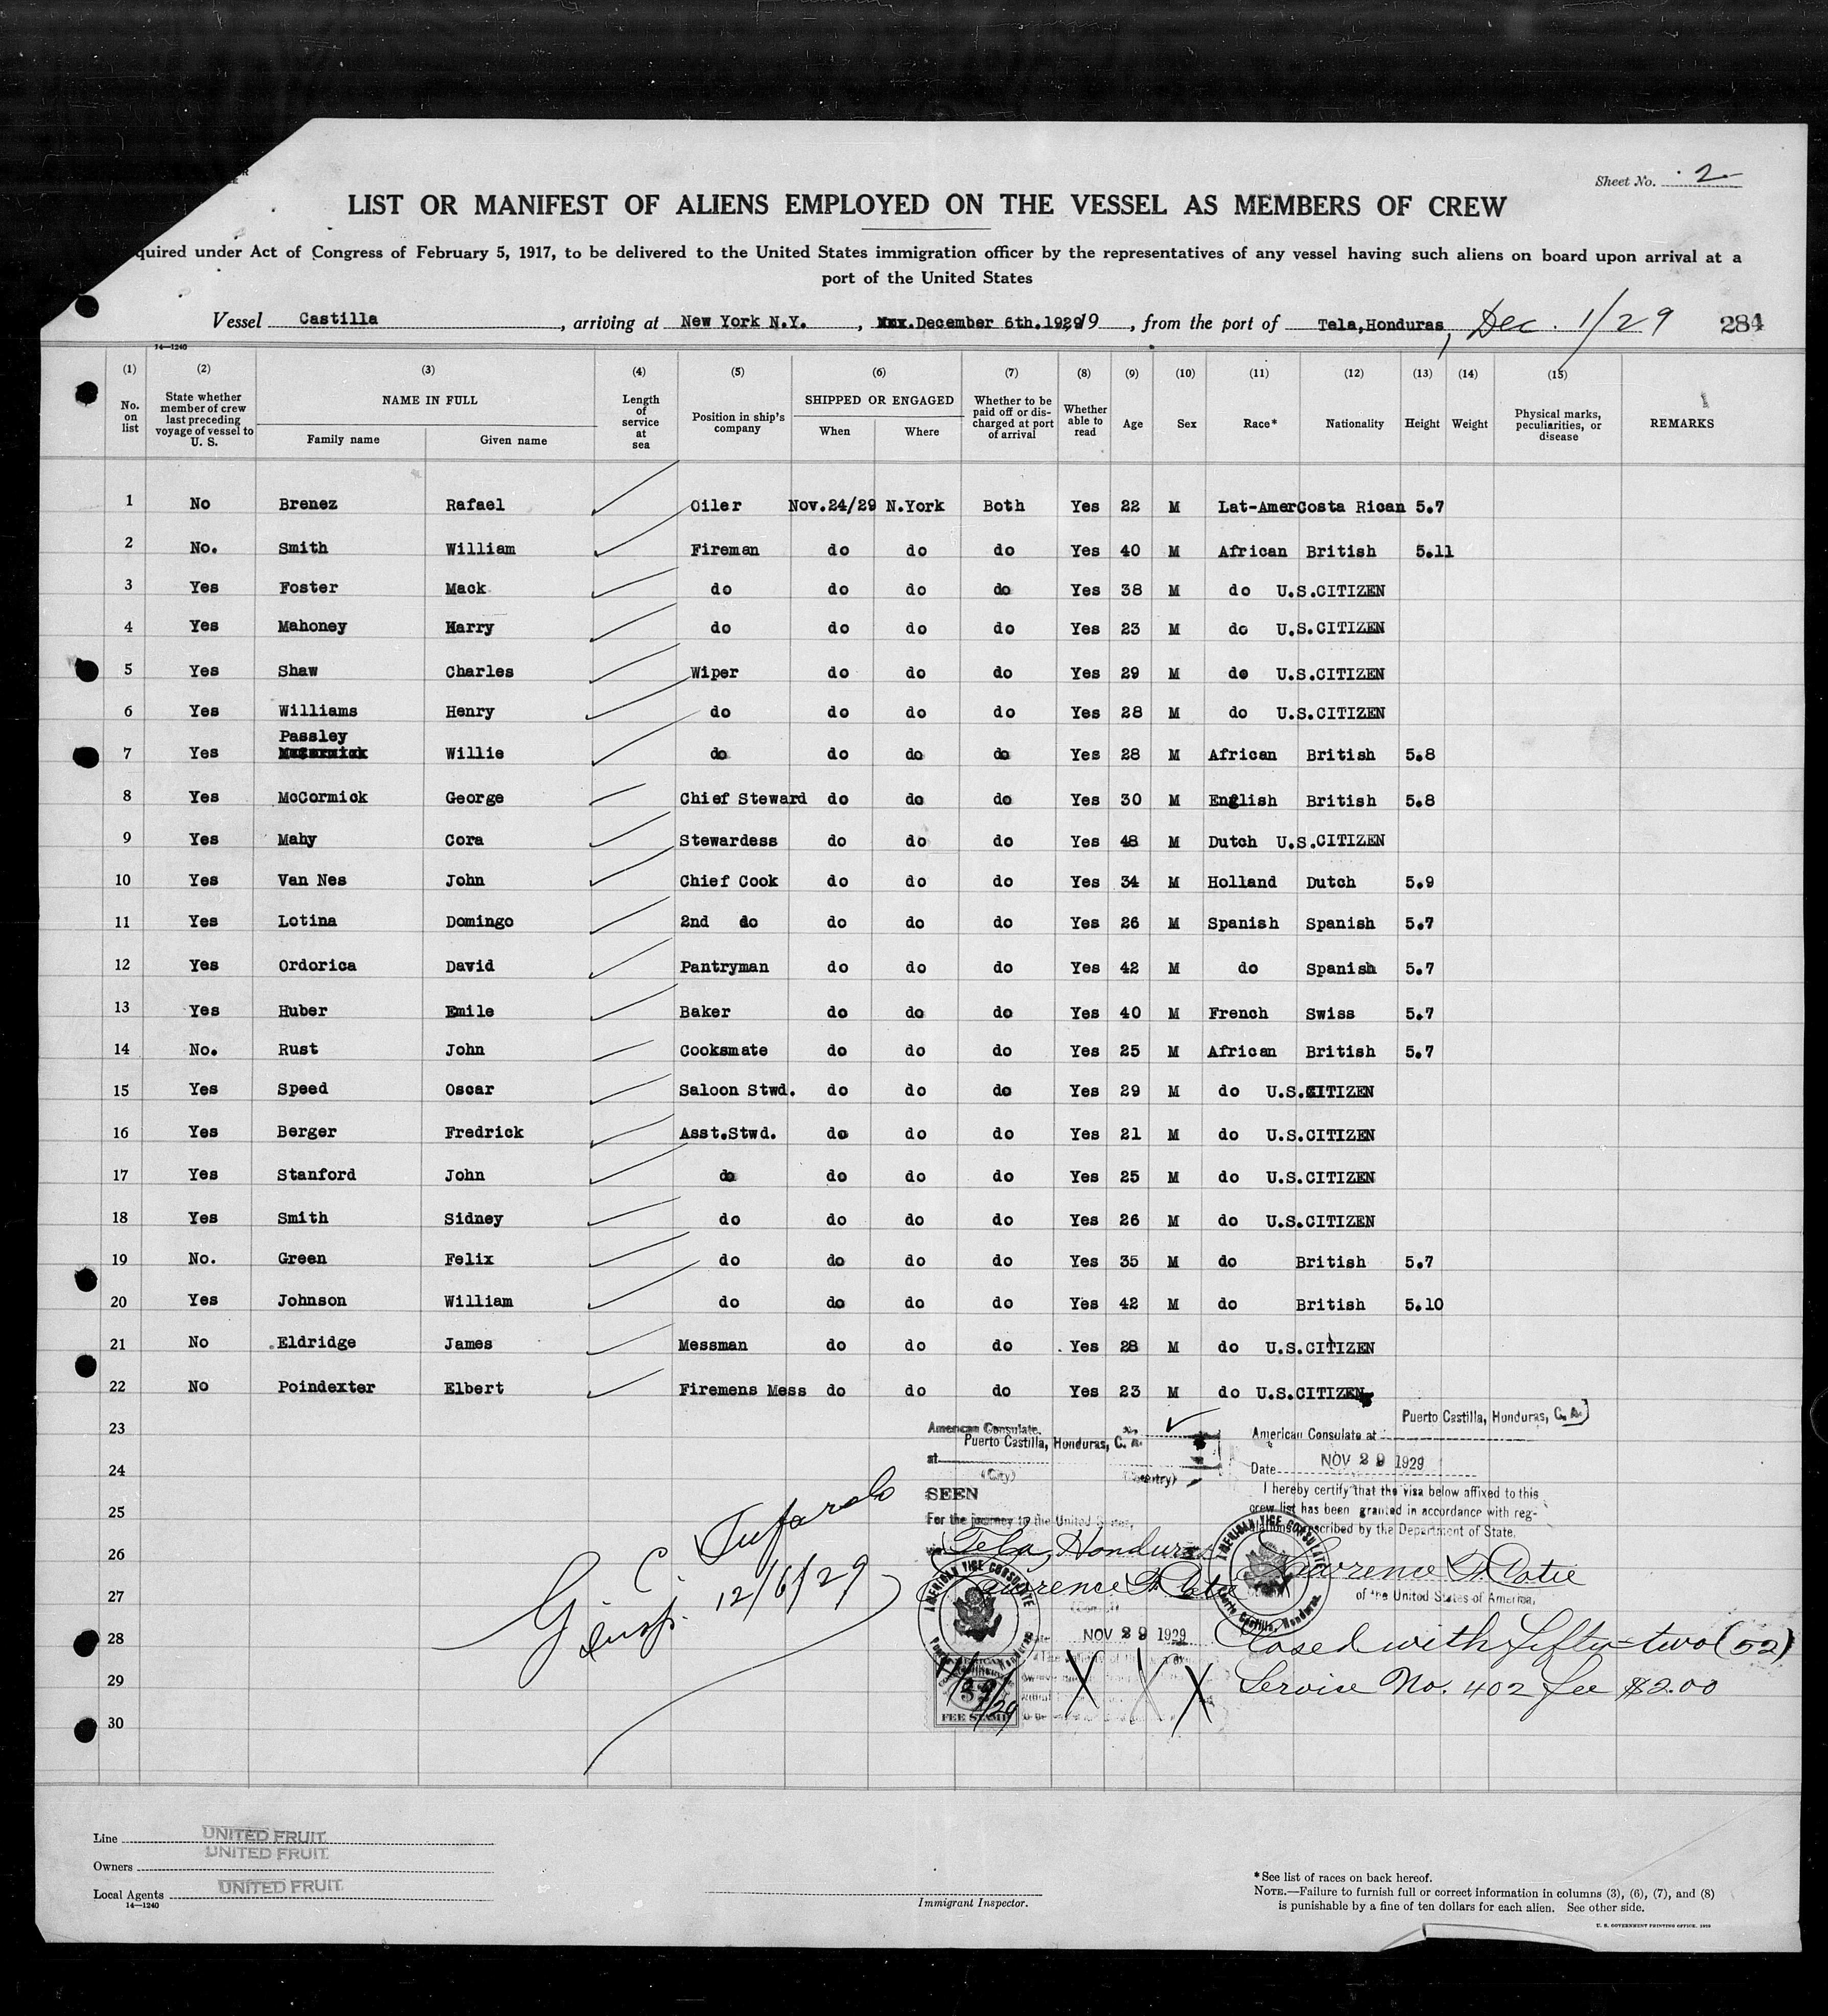 Sheet No. 2
LIST OR MANIFEST OF ALIENS EMPLOYED ON THE VESSEL AS MEMBERS OF CREW
quired under Act of Congress of February 5, 1917, to be delivered to the United States immigration officer by the representatives of any vessel having such aliens on board upon arrival at a
port of the United States
Vessel Castilla, arriving at New York N.Y., December 6th.1929 19, from the port of Tela,Honduras, Dec. 1/29 284
14—1240
(1) (2) (3) (4) (5) (6) (7) (8) (9) (10) (11) (12) (13) (14) (15)
No. on list State whether member of crew last preceding voyage of vessel to U. S. NAME IN FULL Family name Given name Length of service at sea Position in ship's company SHIPPED OR ENGAGED When Where Whether to be paid off or discharged at port of arrival Whether able to read Age Sex Race* Nationality Height Weight Physical marks, peculiarities, or disease REMARKS
1 No Brenez Rafael Oiler Nov.24/29 N.York Both Yes 22 M Lat-Amer Costa Rican 5.7
2 No. Smith William Fireman do do do Yes 40 M African British 5.11
3 Yes Foster Mack do do do do Yes 38 M do U.S.CITIZEN
4 Yes Mahoney Harry do do do do Yes 23 M do U.S.CITIZEN
5 Yes Shaw Charles Wiper do do do Yes 29 M do U.S.CITIZEN
6 Yes Williams Henry do do do do Yes 28 M do U.S.CITIZEN
Passley
7 Yes McCormick Willie do do do do Yes 28 M African British 5.8
8 Yes McCormick George Chief Steward do do do Yes 30 M English British 5.8
9 Yes Mahy Cora Stewardess do do do Yes 48 M Dutch U.S.CITIZEN
10 Yes Van Nes John Chief Cook do do do Yes 34 M Holland Dutch 5.9
11 Yes Lotina Domingo 2nd do do do do Yes 26 M Spanish Spanish 5.7
12 Yes Ordorica David Pantryman do do do Yes 42 M do Spanish 5.7
13 Yes Huber Emile Baker do do do Yes 40 M French Swiss 5.7
14 No. Rust John Cooksmate do do do Yes 25 M African British 5.7
15 Yes Speed Oscar Saloon Stwd. do do do Yes 29 M do U.S.CITIZEN
16 Yes Berger Fredrick Asst.Stwd. do do do Yes 21 M do U.S.CITIZEN
17 Yes Stanford John do do do do Yes 25 M do U.S.CITIZEN
18 Yes Smith Sidney do do do do Yes 26 M do U.S.CITIZEN
19 No. Green Felix do do do do Yes 35 M do British 5.7
20 Yes Johnson William do do do do Yes 42 M do British 5.10
21 No Eldridge James Messman do do do Yes 28 M do U.S.CITIZEN
22 No Poindexter Elbert Firemens Mess do do do Yes 23 M do U.S.CITIZEN
23
24
25
26
27
28
29
30
American Consulate.
Puerto Castilla, Honduras, C. A.
at
(City) (Country)
SEEN
For the journey to the United States,
Tela, Honduras
AMERICAN VICE CONSULATE
NOV 29 1929
11/29/29
FEE STAMP
Puerto Castilla, Honduras, C. A.
American Consulate at
Date NOV 29 1929
I hereby certify that the visa below affixed to this
crew list has been granted in accordance with reg-
ulations prescribed by the Department of State.
AMERICAN VICE CONSULATE
Puerto Castilla, Honduras.
Lawrence
of the United States of America.
Closed with fifty-two (52)
Service No. 402 fee $2.00
12/6/29
Line UNITED FRUIT.
Owners UNITED FRUIT.
Local Agents UNITED FRUIT.
14—1240
Immigrant Inspector.
*See list of races on back hereof.
NOTE.—Failure to furnish full or correct information in columns (3), (6), (7), and (8)
is punishable by a fine of ten dollars for each alien. See other side.
U. S. GOVERNMENT PRINTING OFFICE. 1929